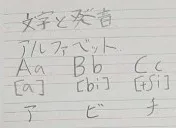 文字と発音
アルファベット.
Aa Bb Cc
[a] [bi] [tʃi]
ア ビ チ